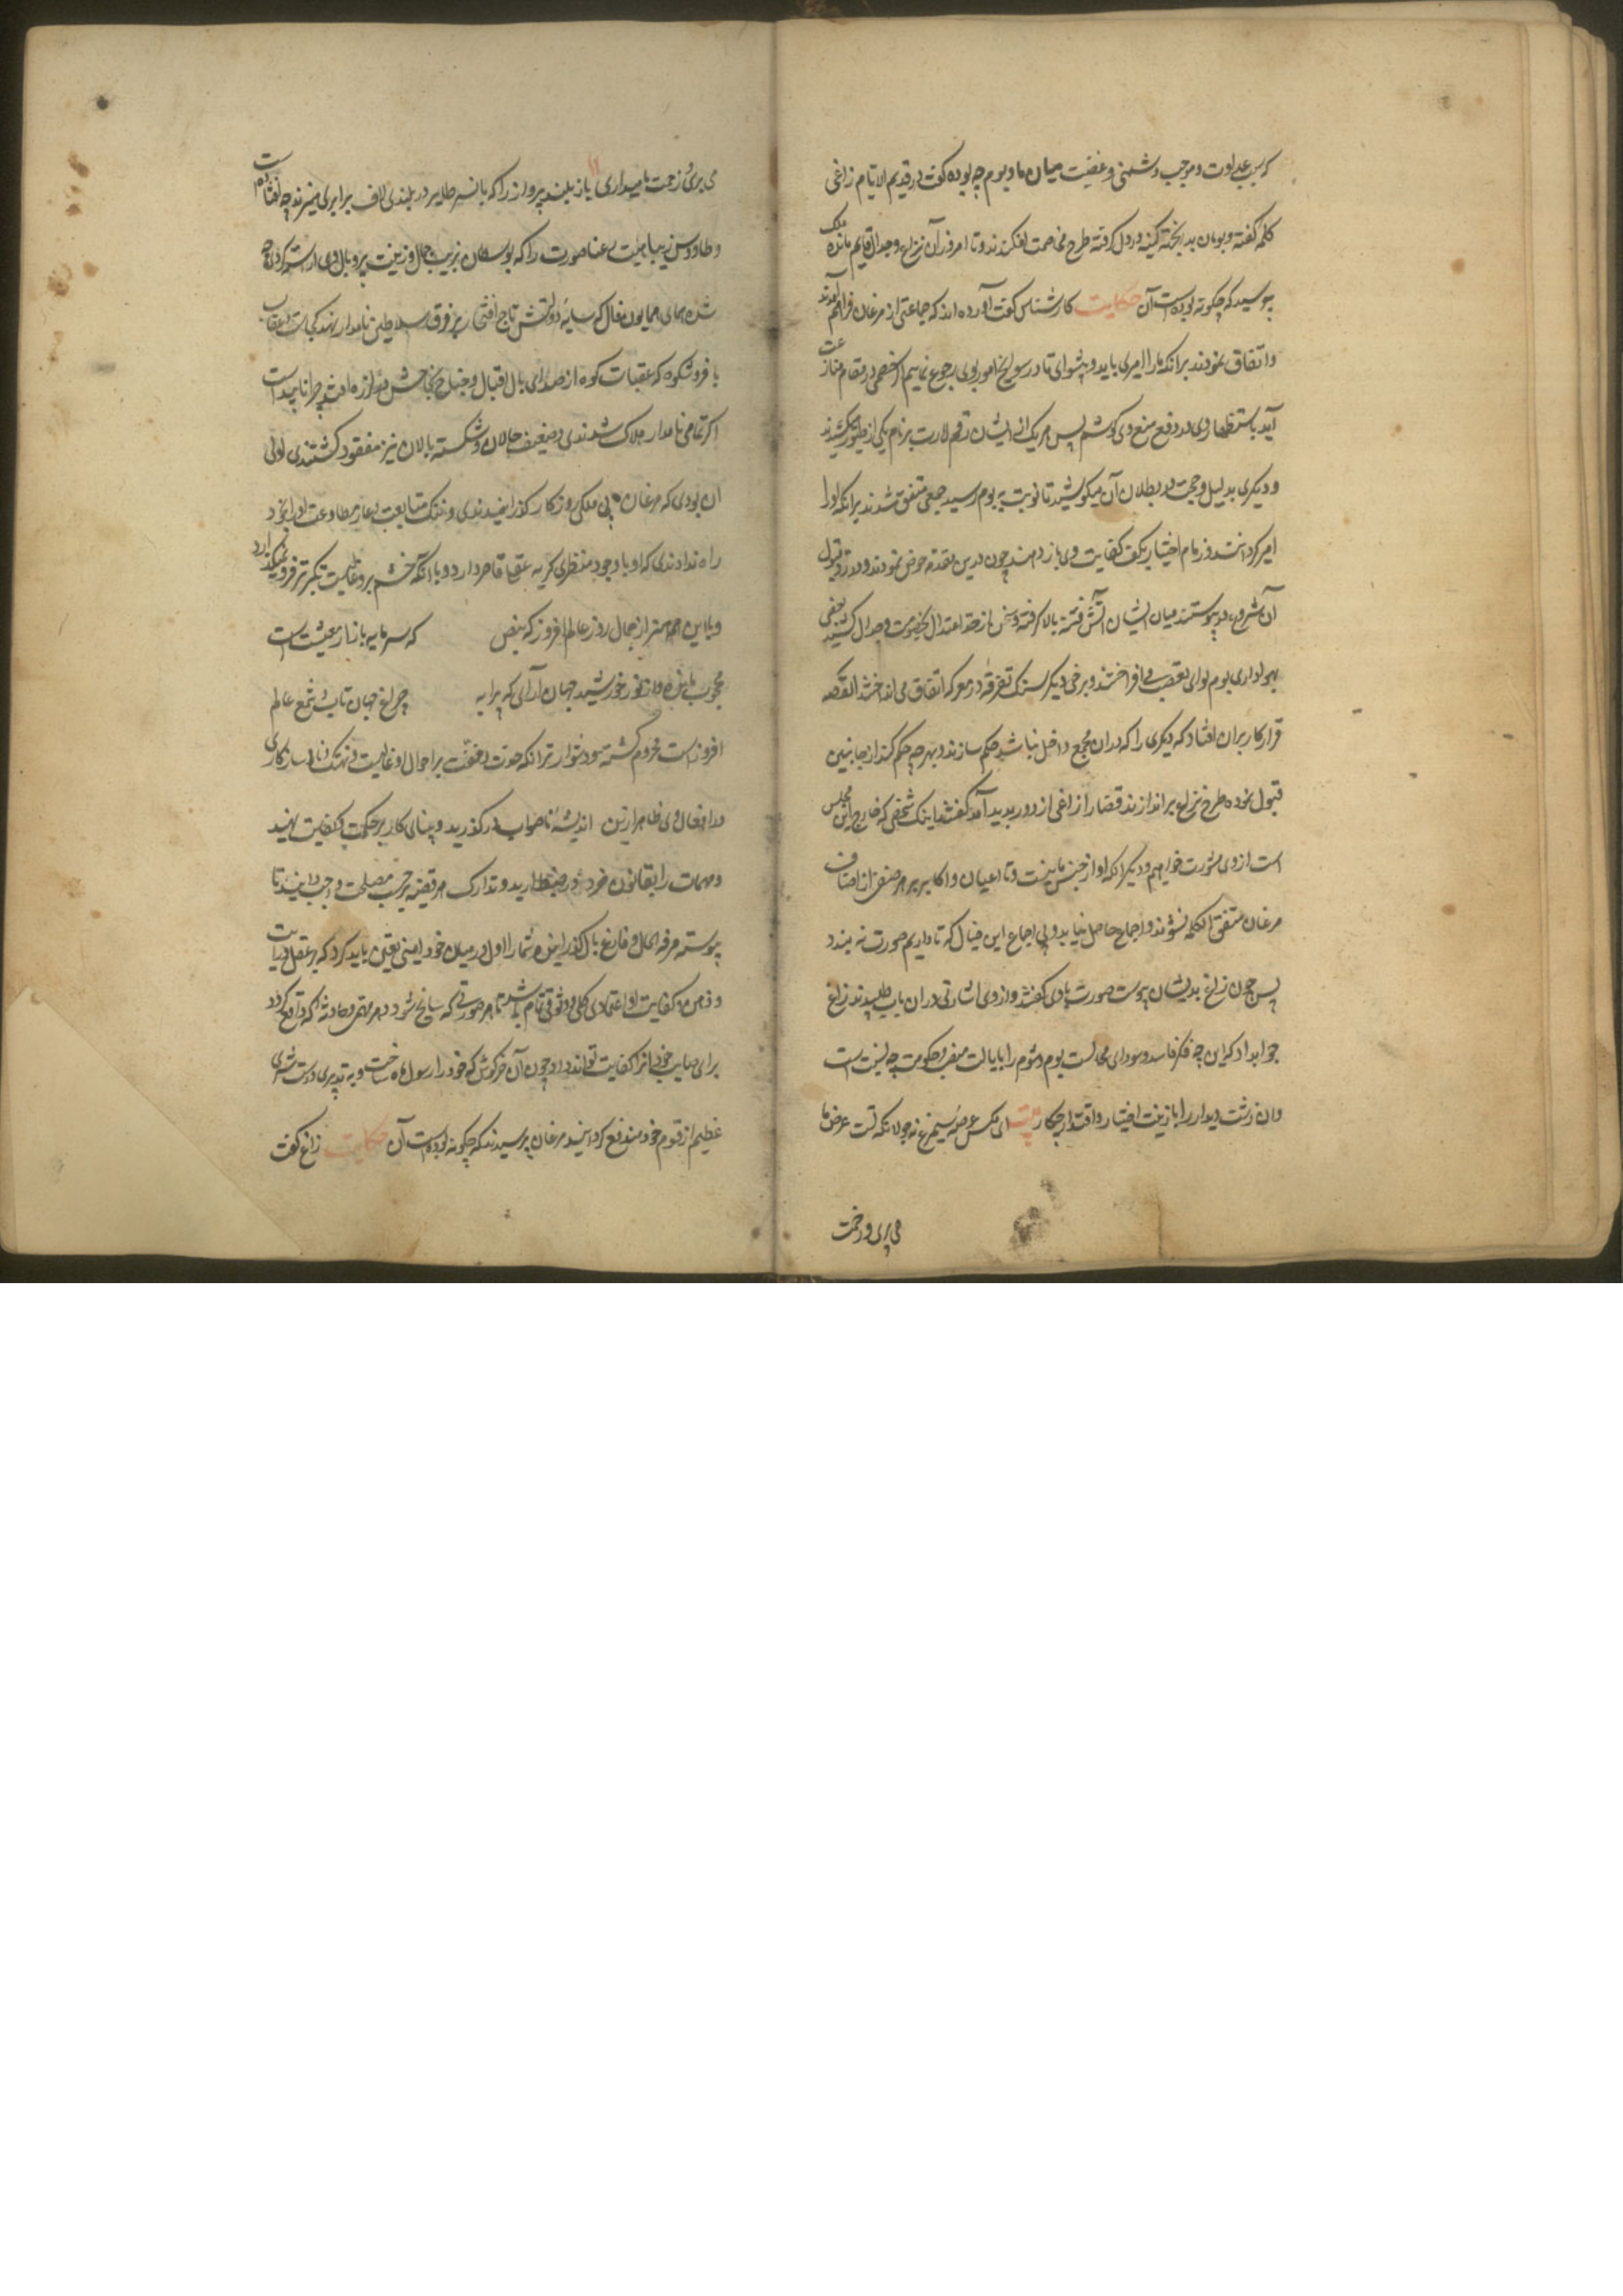 که سبب عداوت و موجب دشمنی و عصبیت میان ما و بوم چه بوده گفت در قدیم الایام زاغی
کلمه گفته و بومان بدانجهته کینه در دل گرفته طرح مخاصمت افکندند و تا امروز آن نزاع و جدال قایم مانده ملک
پرسید که چگونه بوده است آن حکایت کارشناس گفت آورده اند که جماعتی از مرغان فراهم آمدند
و اتفاق نمودند برانکه ما را امیری باید و پیشوای تا در سوانح امور بوی رجوع نماییم اگر خصمی در مقام منازعت
آید باستظهار وی در دفع منع وی کوشیم پس هر یک از ایشان رقم امارت بر نام یکی از طیور میکشیدند
و دیگری بدلیل و حجت در بطلان آن میکوشید تا نوبت به بوم رسید جمعی متفق شدند برانکه او را
امیر گردانند و زمام اختیار بکف کفایت وی باز دهند چون درین مقدمه خوض نمودند و در رد و قبول
آن شروع پیوستند میان ایشان آتش فتنه بالا گرفته و سخن از حد اعتدال بخصومت و جدال کشید بعضی
بهواداری بوم لوای تعصب می افراختند و برخی دیگر سنک تفرقه در معرکه اتفاق می انداختند القصه
قرار کار بران افتاد که دیگری را که در ان مجمع داخل نباشد حکم سازند و بهر چه حکم کند از جانبین
قبول نموده طرح نزاع براندازند قضا را زاغی از دور پدید آمد گفتند اینک شخصی که خارج این مجلس
است از وی مشورت خواهیم و دیگر آنکه او از جنس ماست و تا اعیان و اکابر هر صنفی از اصناف
مرغان متفق الکلمه نشوند و اجماع حاصل نیاید و بی اجماع این خیال که تا داریم صورت نه بندد
پس چون زاغ بدیشان پیوست صورت باوی گفتند و از وی اشارتی در ان باب طلبیدند زاغ
جواب داد که این چه فکر فاسد و سودای محالست بوم شوم را بایالت منصب حکومت چه نسبت است
و ان زشت دیدار را با زینت اختیار و اقتدار چکار بیت ای مکس عرصه سیمرغ نه جولانکه تست عرض ما
می بری و زحمت
می بری و زحمت ما میداری باز بلند پرواز را که با نسر طایر در بلندی لاف برابری میزند چه افتاده است
و طاووس زیبا هیئت رعنا صورت را که بوستان بزیب جمال و زینت پر و بال وی اراسته گردد چه
شد همای همایون فال که سایه دولتش تاج افتخار بر فرق سلاطین نامدار نهد کجاست و عقاب
با فر و شکوه که عقبات کوه از صدای بال اقبال و جناح نجاحش در لرزه افتد چرا ناپیداست
اگر تمامی نامدار هلاک شدندی و ضعیف حالان و شکسته بالان نیز مفقود گشتندی اولی
ان بودی که مرغان بی ملکی روزگار گذرانیدندی و ننک متابعت و عار مطاوعت او را بخود
راه ندادندی که او با وجود منظر کریه عقل قاصر دارد و با آنکه خشم برو غالبست تکبر نیز فرو نمیگذارد
و با این همه از جمال روز عالم افروز که بنص که سرمایه بازار معیشت است
محجوب مانده و از نور خورشید جهان آرای که پرایه چراغ جهان تاب و شمع عالم
افروز است محروم گشته و دشوارتر آنکه حدت و خفت بر احوال او غالبست و تهتک و ناسازگاری
در افعال وی ظاهر ازین اندیشه ناصواب در گذرید و بنای کار بر حکمت و کفایت نهید
و مهمات را بقانون خرد ضبط دارید و تدارک هر قضیه بر حسب مصلحت واجب دانید تا
پیوسته مرفه الحال و فارغ بال گذرانید و شما را اول در میان خود امینی تعین باید کرد که بر عقل و درایت
و ذهن و کفایت او اعتمادی کلی و وثوقی تمام باشد تا هر صورتی که سانح شود و هر مهمی و حادثه که واقع گردد
برای صایب خود انرا کفایت تواند داد چون آن خرگوش که خود را رسول ماه ساخت و به تدبیری درست شری
عظیم از قوم خود مندفع گردانید مرغان پرسیدند که چگونه بوده است آن حکایت زاغ گفت